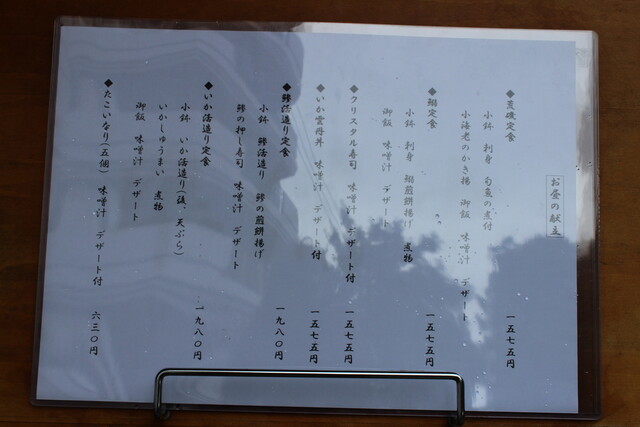 お昼の献立
◆荒磯定食
小鉢 刺身 旬魚の煮付
小海老のかき揚 御飯 味噌汁 デザート
一五七五円
◆鯛定食
小鉢 刺身 鯛煎餅揚げ 煮物
御飯 味噌汁 デザート
一五七五円
◆クリスタル寿司 味噌汁 デザート付
一五七五円
◆いか雲丹丼 味噌汁 デザート付
一五七五円
◆鯵活造り定食
小鉢 鯵活造り 鯵の煎餅揚げ
鯵の押し寿司 味噌汁 デザート
一九八〇円
◆いか活造り定食
小鉢 いか活造り(後、天ぷら)
いかしゅうまい 煮物
御飯 味噌汁 デザート
一九八〇円
◆たこいなり(五個) 味噌汁 デザート付
六三〇円